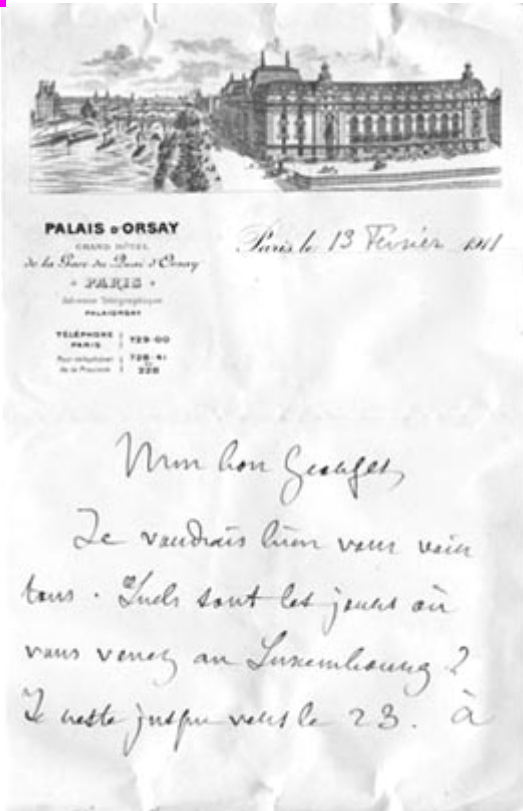 PALAIS D'ORSAY
GRAND HÔTEL
de la Gare du Quai d'Orsay
PARIS
Adresse Télégraphique
PALAIORSAY
TÉLÉPHONE PARIS 729-00
Pour téléphoner de la Province 728-41
228
Paris le 13 Février 1911
Mon bon Georges,
Je voudrais bien vous voir
tous. Quels sont les jours où
vous venez au Luxembourg ?
Je reste jusque vers le 23. À